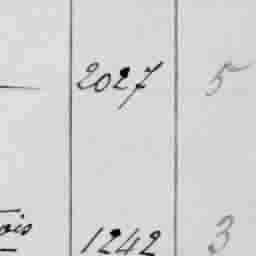 2027 5
ois 1242 3